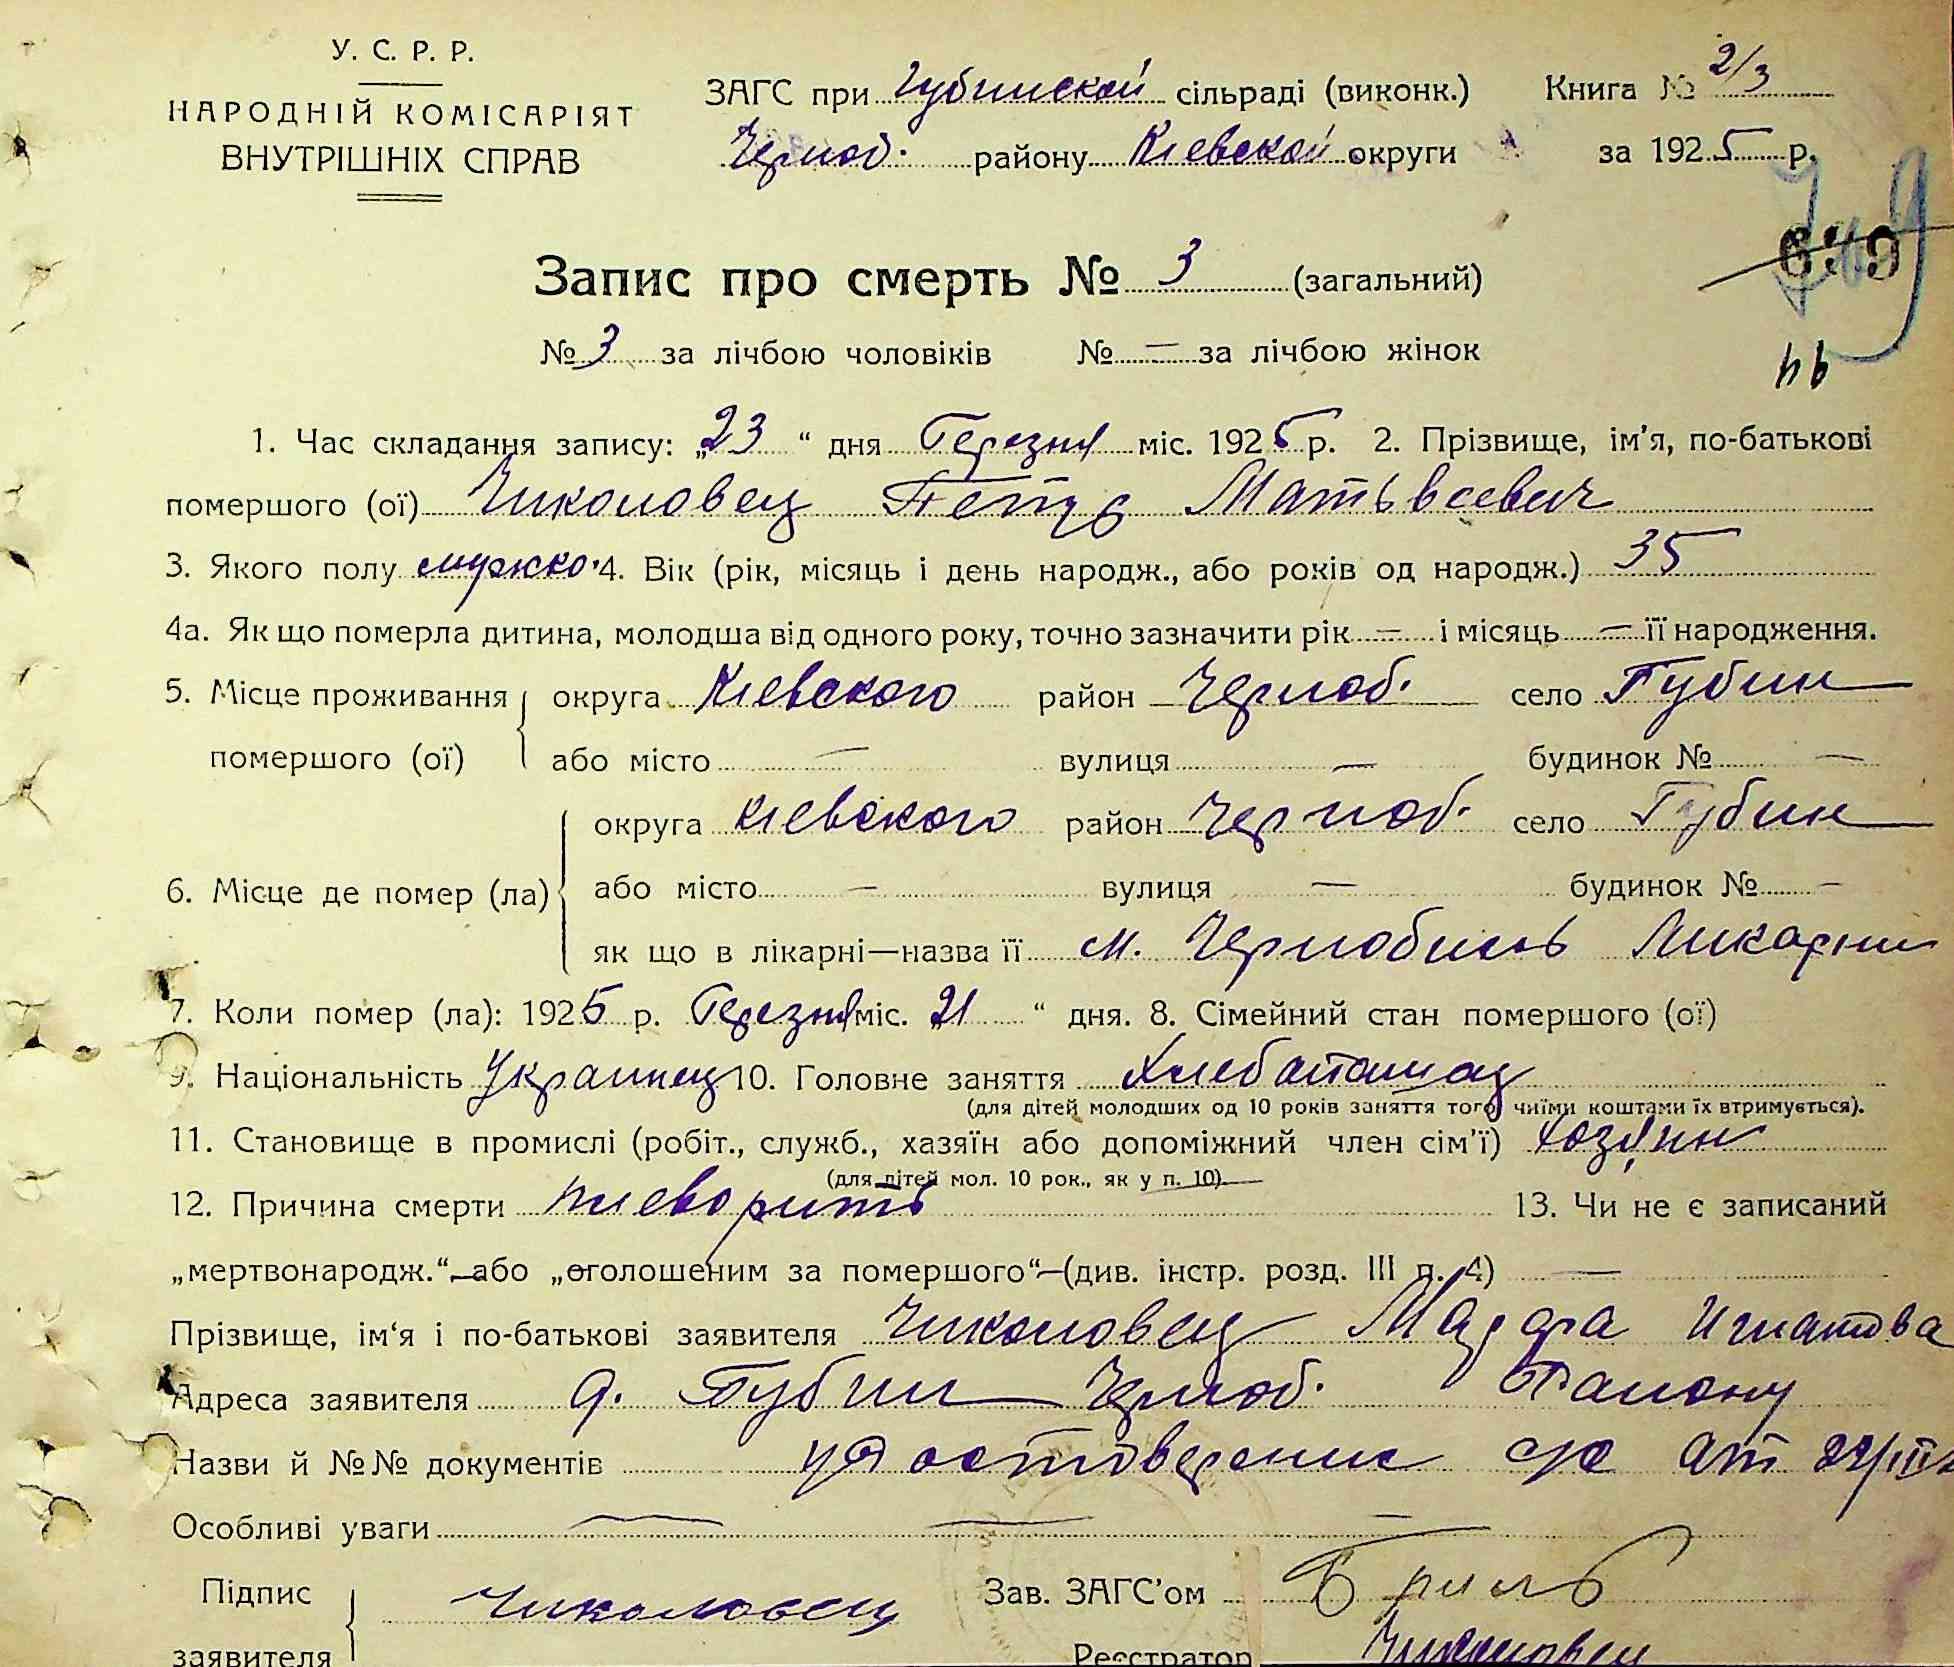 У. С. Р. Р.
НАРОДНІЙ КОМІСАРІЯТ
ВНУТРІШНІХ СПРАВ
ЗАГС при Губинской сільраді (виконк.) Книга № 2/3
Черноб. району Кіевской округи за 1925 р.
Запис про смерть № 3 (загальний)
№ 3 за лічбою чоловіків № — за лічбою жінок
1. Час складання запису: „23“ дня Березня міс. 1925 р. 2. Прізвище, ім'я, по-батькові
помершого (ої) Чиколовец Петр Матьвеевич
3. Якого полу мужско. 4. Вік (рік, місяць і день народж., або років од народж.) 35
4а. Як що померла дитина, молодша від одного року, точно зазначити рік — і місяць — її народження.
5. Місце проживання помершого (ої) округа Кіевского район Черноб. село Губин
або місто — вулиця — будинок № —
6. Місце де помер (ла) округа Кіевского район Черноб. село Губин
або місто — вулиця — будинок № —
як що в лікарні—назва її м. Чернобиль Ликарни
7. Коли помер (ла): 1925 р. Березня міс. „21“ дня. 8. Сімейний стан помершого (ої)
9. Національність Украинец 10. Головне заняття Хлебапашац
(для дітей молодших од 10 років заняття того, чиїми коштами їх втримується).
11. Становище в промислі (робіт., служб., хазяїн або допоміжний член сім'ї) Хозяин
(для дітей мол. 10 рок., як у п. 10)
12. Причина смерти плеворить 13. Чи не є записаний
„мертвонародж.“ — або „оголошеним за помершого“ — (див. інстр. розд. III п. 4) —
Прізвище, ім'я і по-батькові заявителя Чиколовец Игнатова
Адреса заявителя д. Губин Черноб. Району
Назви й №№ документів удостоверение от
Особливі уваги — — —
Підпис заявителя Чиколовец
Зав. ЗАГС'ом Бриль
Реєстратор Чиколовец